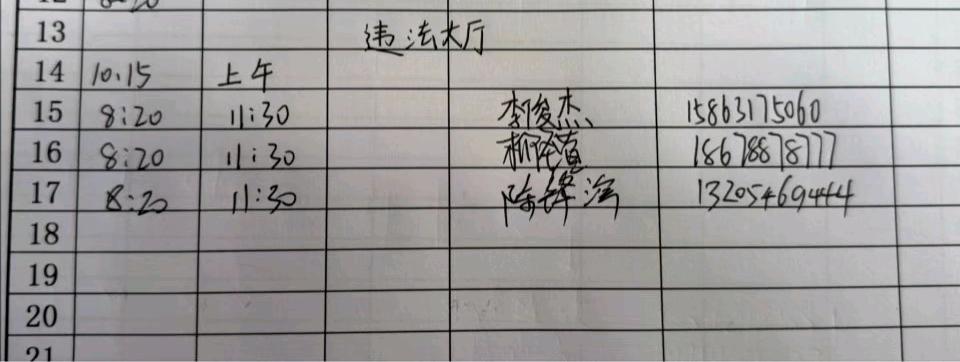 13 违法大厅
14 10.15 上午
15 8:20 11:30 李俊杰 15863175060
16 8:20 11:30 18678878777
17 8:20 11:30 13205469444
18
19
20
21